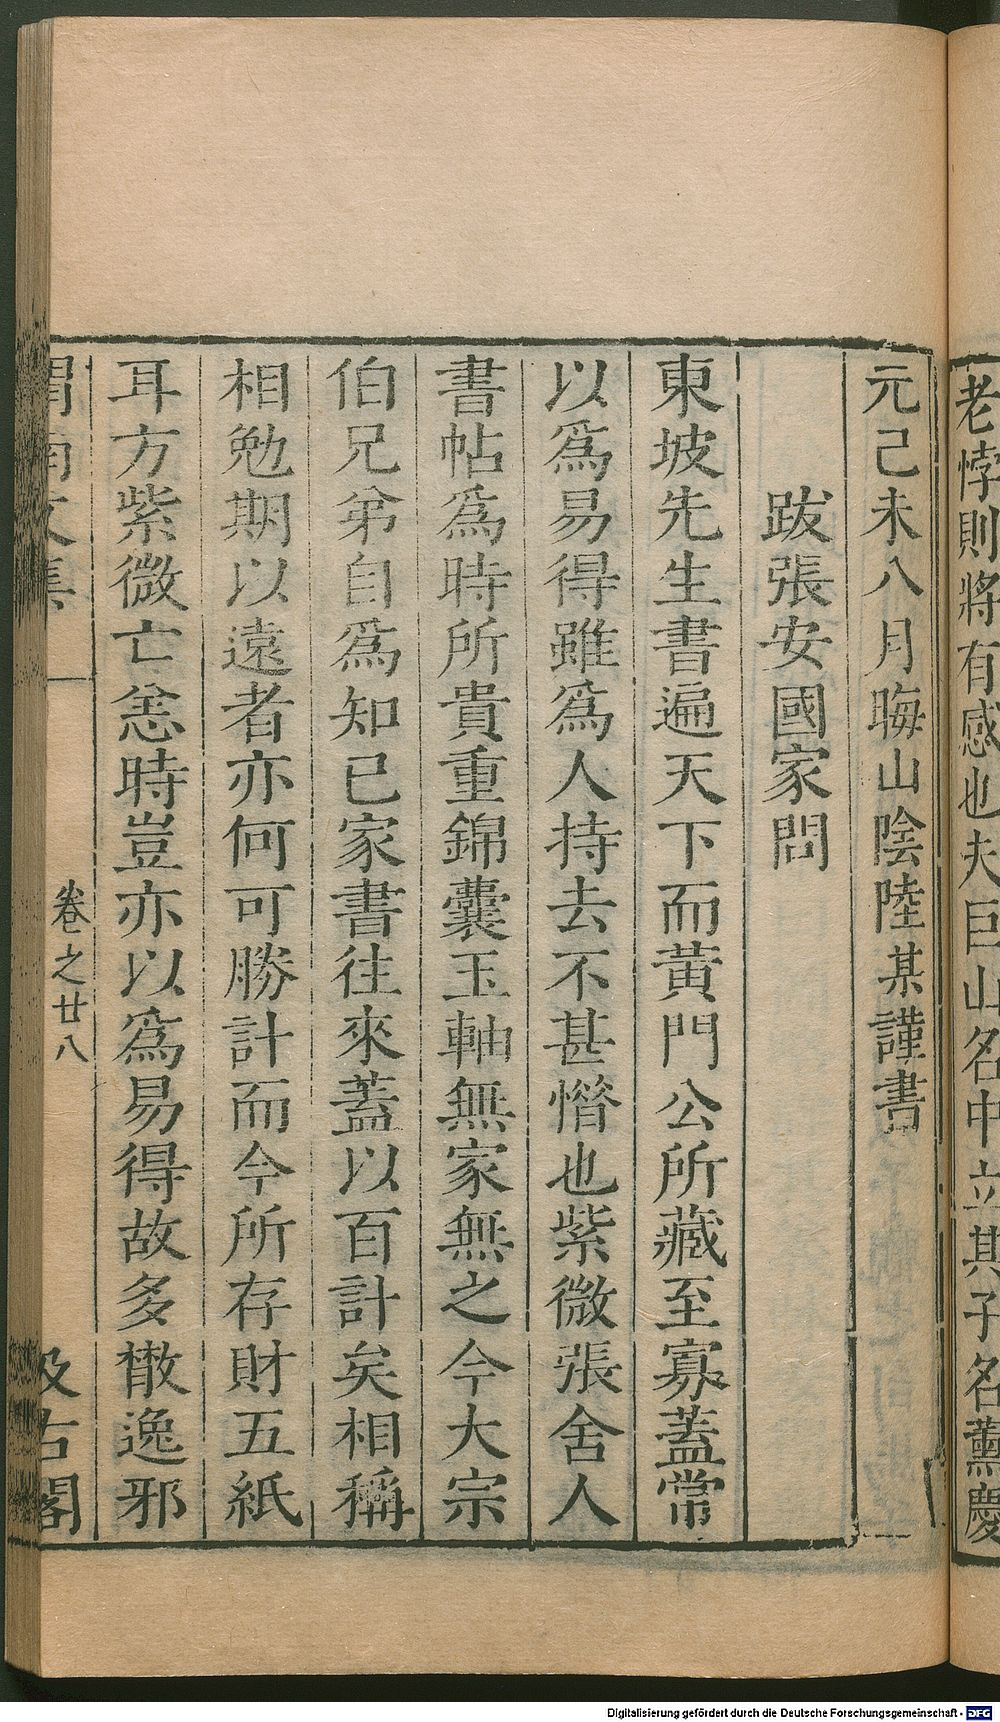 老悖則將有感也夫巨山名中立其子名薰慶
元己未八月晦山陰陸某謹書
跋張安國家問
東坡先生書遍天下而黃門公所藏至寡蓋常
以為易得雖為人持去不甚惜也紫微張舍人
書帖為時所貴重錦囊玉軸無家無之今大宗
伯兄弟自為知己家書往來蓋以百計矣相稱
相勉期以遠者亦何可勝計而今所存財五紙
耳方紫微亡恙時豈亦以為易得故多散逸邪
渭南文集
卷之廿八
汲古閣
Digitalisierung gefördert durch die Deutsche Forschungsgemeinschaft - DFG